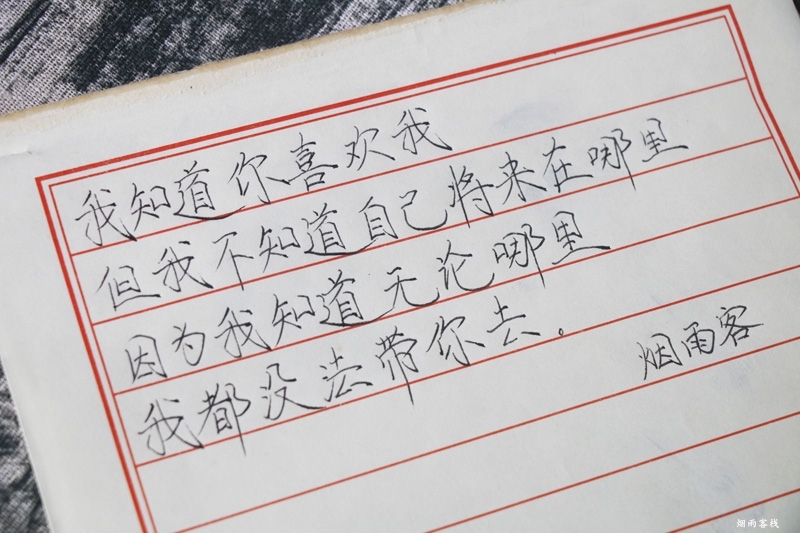 我知道你喜欢我
但我不知道自己将来在哪里
因为我知道无论哪里
我都没法带你去。
烟雨客
烟雨客栈